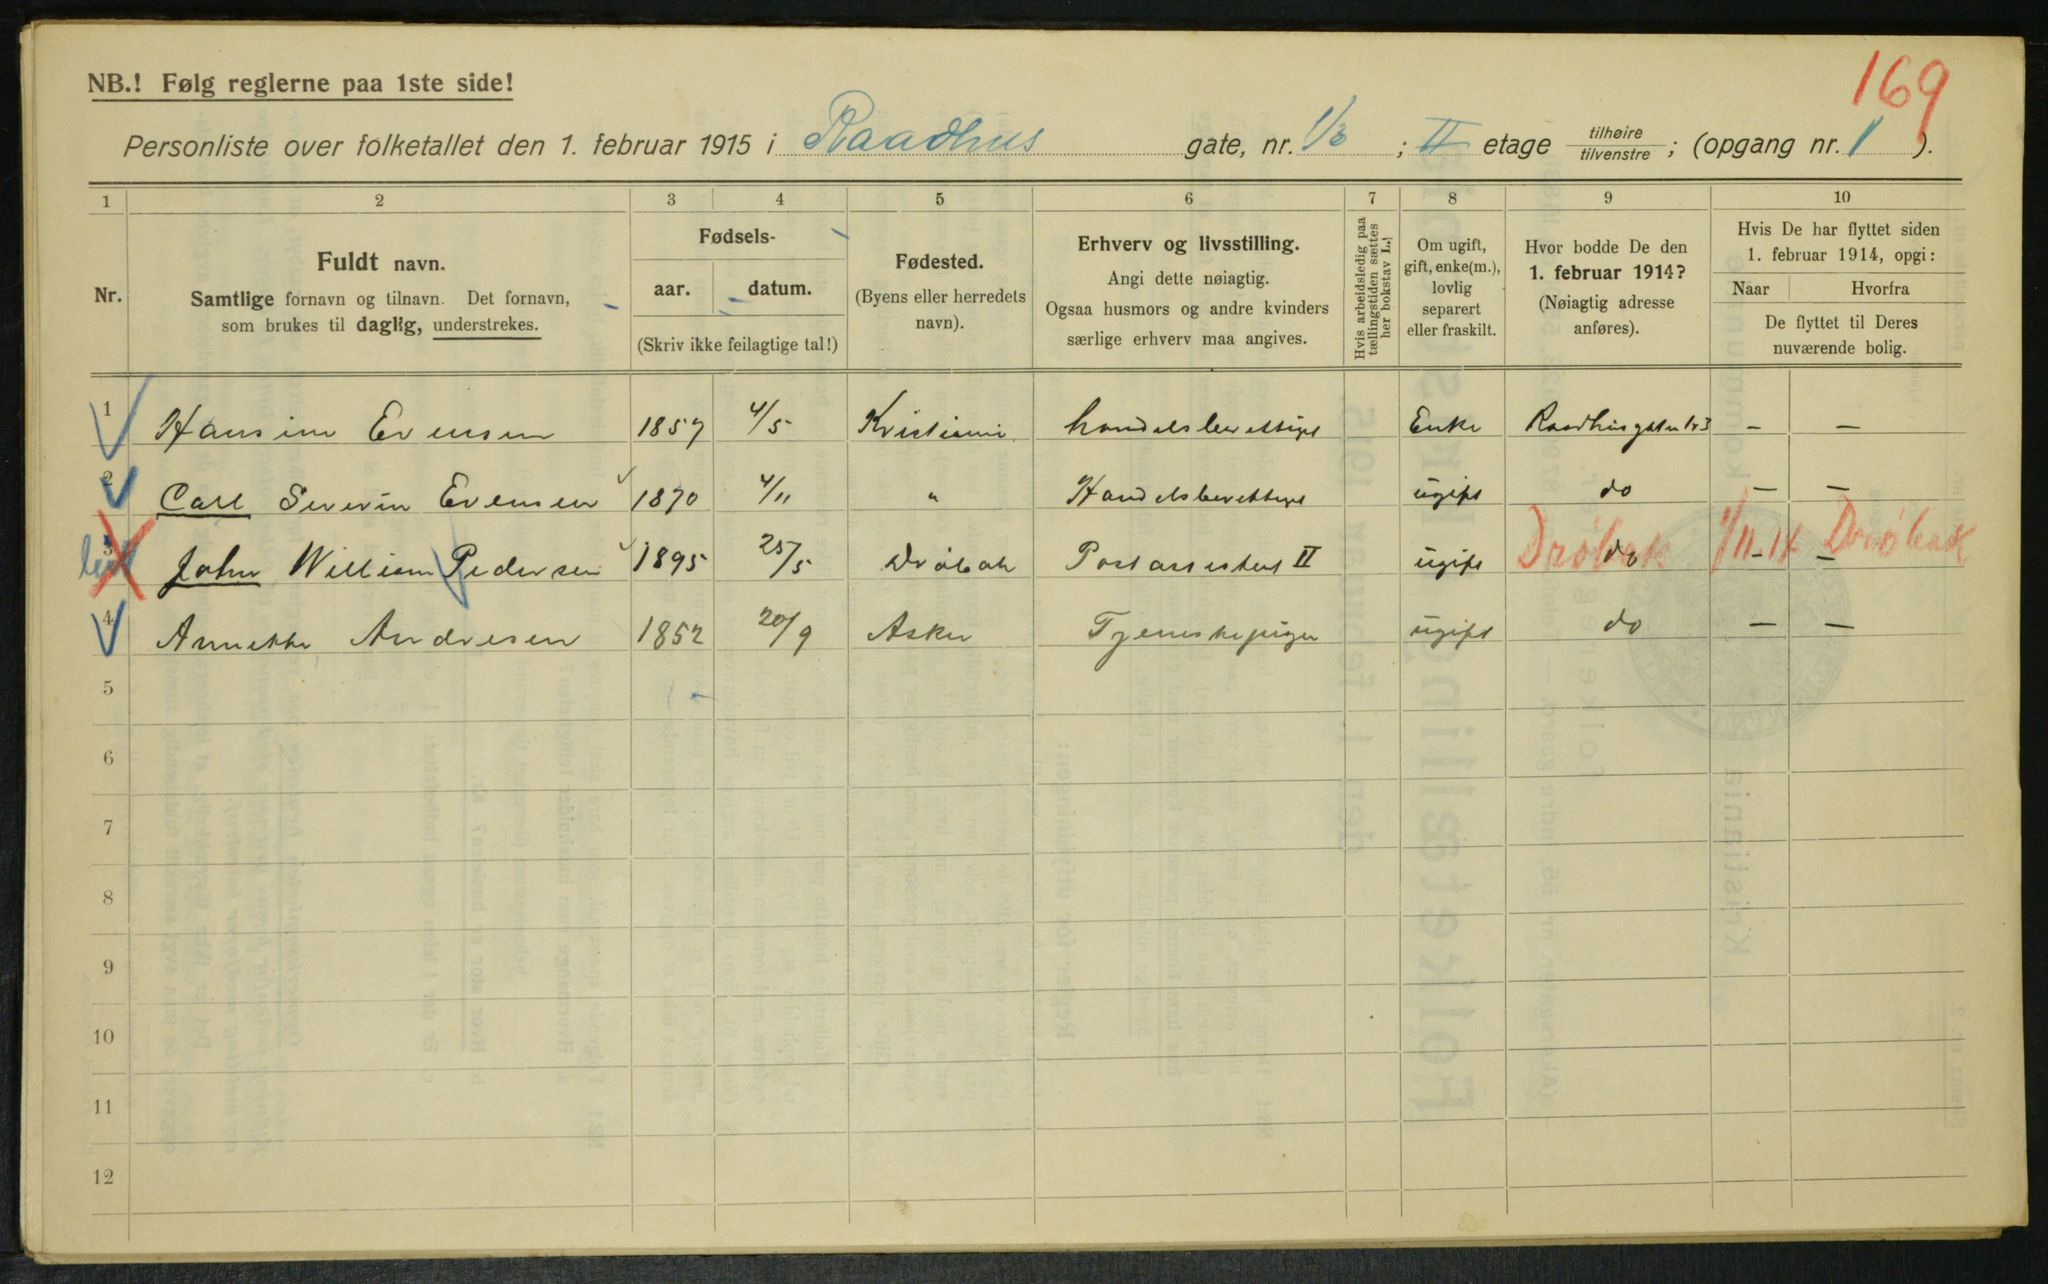 169
NB.! Følg reglerne paa 1ste side!
Personliste over folketallet den 1. februar 1915 i Raadhus gate, nr. 1/3 ; II etage tilhøire / tilvenstre ; (opgang nr. 1 ).
1 2 3 4 5 6 7 8 9 10
Nr.
Fuldt navn.
Samtlige fornavn og tilnavn. Det fornavn,
som brukes til daglig, understrekes.
Fødsels-
aar. datum.
(Skriv ikke feilagtige tal!)
Fødested.
(Byens eller herredets
navn).
Erhverv og livsstilling.
Angi dette nøiagtig.
Ogsaa husmors og andre kvinders
særlige erhverv maa angives.
Hvis arbeidsledig paa
tællingstiden sættes
her bokstav L.!
Om ugift,
gift, enke(m.),
lovlig
separert
eller fraskilt.
Hvor bodde De den
1. februar 1914?
(Nøiagtig adresse
anføres).
Hvis De har flyttet siden
1. februar 1914, opgi:
Naar Hvorfra
De flyttet til Deres
nuværende bolig.
1 Hansine Evensen 1857 4/5 Kristiania handelsberettiget Enke Raadhusgaten 1&3 — —
2 Carl Severin Evensen 1870 4/11 " Handelsberettiget ugift do — —
3 John William Pedersen 1895 25/5 Drøbak Postassistent II ugift do Drøbak 1/11-14 — Drøbak
4 Annette Andresen 1852 20/9 Asker Tjenestepige ugift do — —
5
6
7
8
9
10
11
12